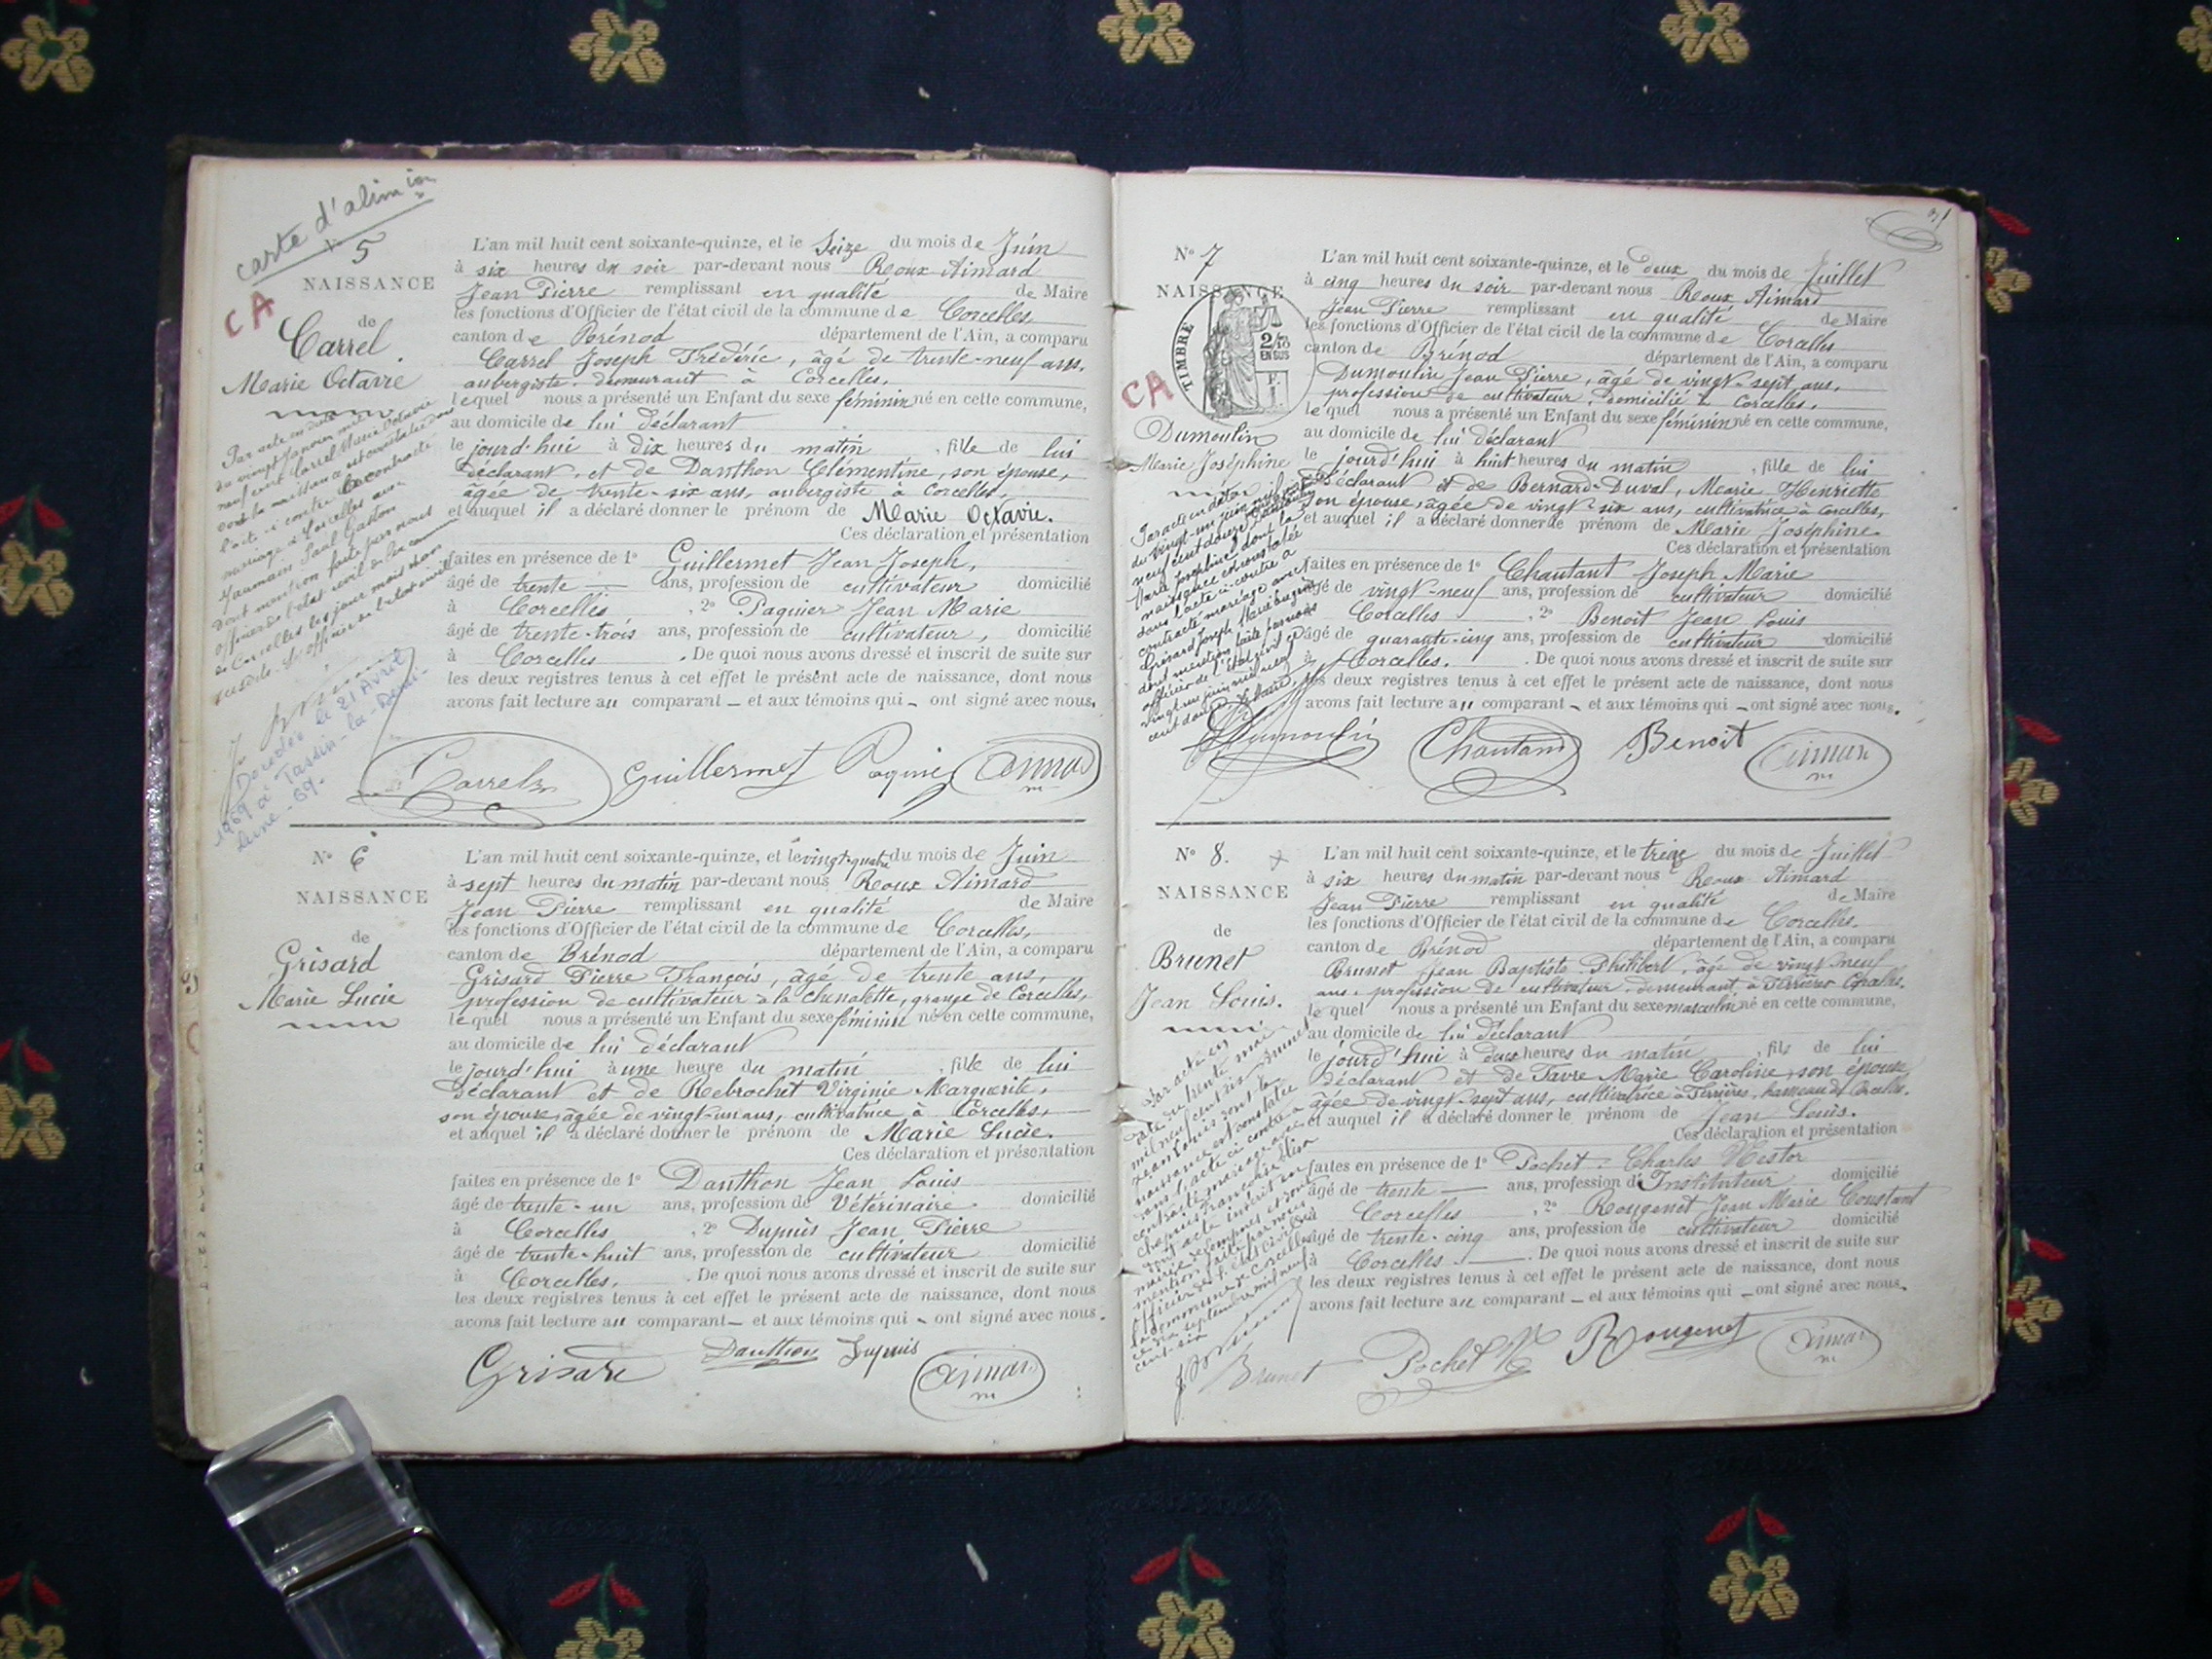 carte d'alim ion
N° 5
NAISSANCE
CA
de
Carrel
Marie Octavie
L'an mil huit cent soixante-quinze, et le Seize du mois de Juin
à six heures du soir par-devant nous Roux Aimard
Jean Pierre remplissant en qualité de Maire
les fonctions d'Officier de l'état civil de la commune de Corcelles
canton de Brénod département de l'Ain, a comparu
Carrel Joseph Frédéric, âgé de trente-neuf ans,
aubergiste, demeurant à Corcelles,
lequel nous a présenté un Enfant du sexe féminin né en cette commune,
au domicile de lui déclarant
le jourd'hui à dix heures du matin, fille de lui
déclarant, et de Danthon Clémentine, son épouse,
âgée de trente-six ans, aubergiste à Corcelles,
et auquel il a déclaré donner le prénom de Marie Octavie.
Ces déclaration et présentation
faites en présence de 1° Guillermet Jean Joseph,
âgé de trente ans, profession de cultivateur domicilié
à Corcelles, 2° Paquier Jean Marie
âgé de trente-trois ans, profession de cultivateur, domicilié
à Corcelles. De quoi nous avons dressé et inscrit de suite sur
les deux registres tenus à cet effet le présent acte de naissance, dont nous
avons fait lecture au comparant — et aux témoins qui — ont signé avec nous.
Par acte en date
du vingt Janvier mil
neuf cent Carrel Marie Octavie
dont la naissance est constatée dans
l'acte ci contre a contracté
mariage à Corcelles avec
Paul Gaston
dont mention faite par nous
officier de l'état civil de la commune
de Corcelles les jour mois et an
susdits. L'officier de l'état civil
Décédée le 21 Avril
1969 à Tassin-la-Demi-
Lune - 69.
Carrel Guillermet Paquier Aimar
N° 6
NAISSANCE
de
Grisard
Marie Lucie
L'an mil huit cent soixante-quinze, et le vingt-quatre du mois de Juin
à sept heures du matin par-devant nous Roux Aimard
Jean Pierre remplissant en qualité de Maire
les fonctions d'Officier de l'état civil de la commune de Corcelles,
canton de Brénod département de l'Ain, a comparu
Grisard Pierre François, âgé de trente ans,
profession de cultivateur à la Chenalette, grange de Corcelles,
lequel nous a présenté un Enfant du sexe féminin né en cette commune,
au domicile de lui déclarant
le jourd'hui à une heure du matin, fille de lui
déclarant et de Rebrochet Virginie Marguerite,
son épouse, âgée de vingt-un ans, cultivatrice à Corcelles,
et auquel il a déclaré donner le prénom de Marie Lucie.
Ces déclaration et présentation
faites en présence de 1° Danthon Jean Louis
âgé de trente-un ans, profession de Vétérinaire domicilié
à Corcelles, 2° Dupuis Jean Pierre
âgé de trente-huit ans, profession de cultivateur domicilié
à Corcelles. De quoi nous avons dressé et inscrit de suite sur
les deux registres tenus à cet effet le présent acte de naissance, dont nous
avons fait lecture au comparant — et aux témoins qui — ont signé avec nous.
Grisard Danthon Dupuis Aimar
31
N° 7
NAISSANCE
TIMBRE
2/10
EN SUS
CA
Dumoulin
Marie Joséphine
L'an mil huit cent soixante-quinze, et le deux du mois de Juillet
à cinq heures du soir par-devant nous Roux Aimard
Jean Pierre remplissant en qualité de Maire
les fonctions d'Officier de l'état civil de la commune de Corcelles
canton de Brénod département de l'Ain, a comparu
Dumoulin Jean Pierre, âgé de vingt-sept ans,
profession de cultivateur, domicilié à Corcelles,
lequel nous a présenté un Enfant du sexe féminin né en cette commune,
au domicile de lui déclarant
le jourd'hui à huit heures du matin, fille de lui
déclarant et de Bernard-Duval, Marie Henriette
son épouse, âgée de vingt-six ans, cultivatrice à Corcelles,
et auquel il a déclaré donner le prénom de Marie Joséphine.
Ces déclaration et présentation
faites en présence de 1° Chautant Joseph Marie
âgé de vingt-neuf ans, profession de cultivateur domicilié
à Corcelles, 2° Benoit Jean Louis
âgé de quarante-cinq ans, profession de cultivateur domicilié
à Corcelles. De quoi nous avons dressé et inscrit de suite sur
les deux registres tenus à cet effet le présent acte de naissance, dont nous
avons fait lecture au comparant — et aux témoins qui — ont signé avec nous.
Par acte en date
du vingt-un juin mil
neuf cent douze Dumoulin
Marie Joséphine dont la
naissance est constatée
dans l'acte ci-contre a
contracté mariage avec
Joseph
dont mention faite par nous
officier de l'état civil ce
vingt un juin mil neuf
cent douze
Dumoulin Chautant Benoit Aimar
N° 8.
NAISSANCE
de
Brunet
Jean Louis.
L'an mil huit cent soixante-quinze, et le treize du mois de Juillet
à six heures du matin par-devant nous Roux Aimard
Jean Pierre remplissant en qualité de Maire
les fonctions d'Officier de l'état civil de la commune de Corcelles.
canton de Brénod département de l'Ain, a comparu
Brunet Jean Baptiste Philibert, âgé de vingt-neuf
ans, profession de cultivateur, demeurant à Ferrières Corcelles.
lequel nous a présenté un Enfant du sexe masculin né en cette commune,
au domicile de lui déclarant
le jourd'hui à deux heures du matin, fils de lui
déclarant et de Favre Marie Caroline, son épouse,
âgée de vingt-sept ans, cultivatrice à Ferrières, hameau de Corcelles.
et auquel il a déclaré donner le prénom de Jean Louis.
Ces déclaration et présentation
faites en présence de 1° Pochet Charles Nestor
âgé de trente ans, profession d'Instituteur domicilié
à Corcelles, 2° Rougenet Jean Marie Constant
âgé de trente-cinq ans, profession de cultivateur domicilié
à Corcelles. De quoi nous avons dressé et inscrit de suite sur
les deux registres tenus à cet effet le présent acte de naissance, dont nous
avons fait lecture au comparant — et aux témoins qui — ont signé avec nous.
Par acte en
date du trente mai
mil neuf cent six Brunet
Jean Louis dont la
naissance est constatée
dans l'acte ci contre a
contracté mariage avec
mention faite par nous
Officier de l'état civil de
la commune de Corcelles
septembre mil neuf
cent six
Brunet Pochet N Rougenet Aimar